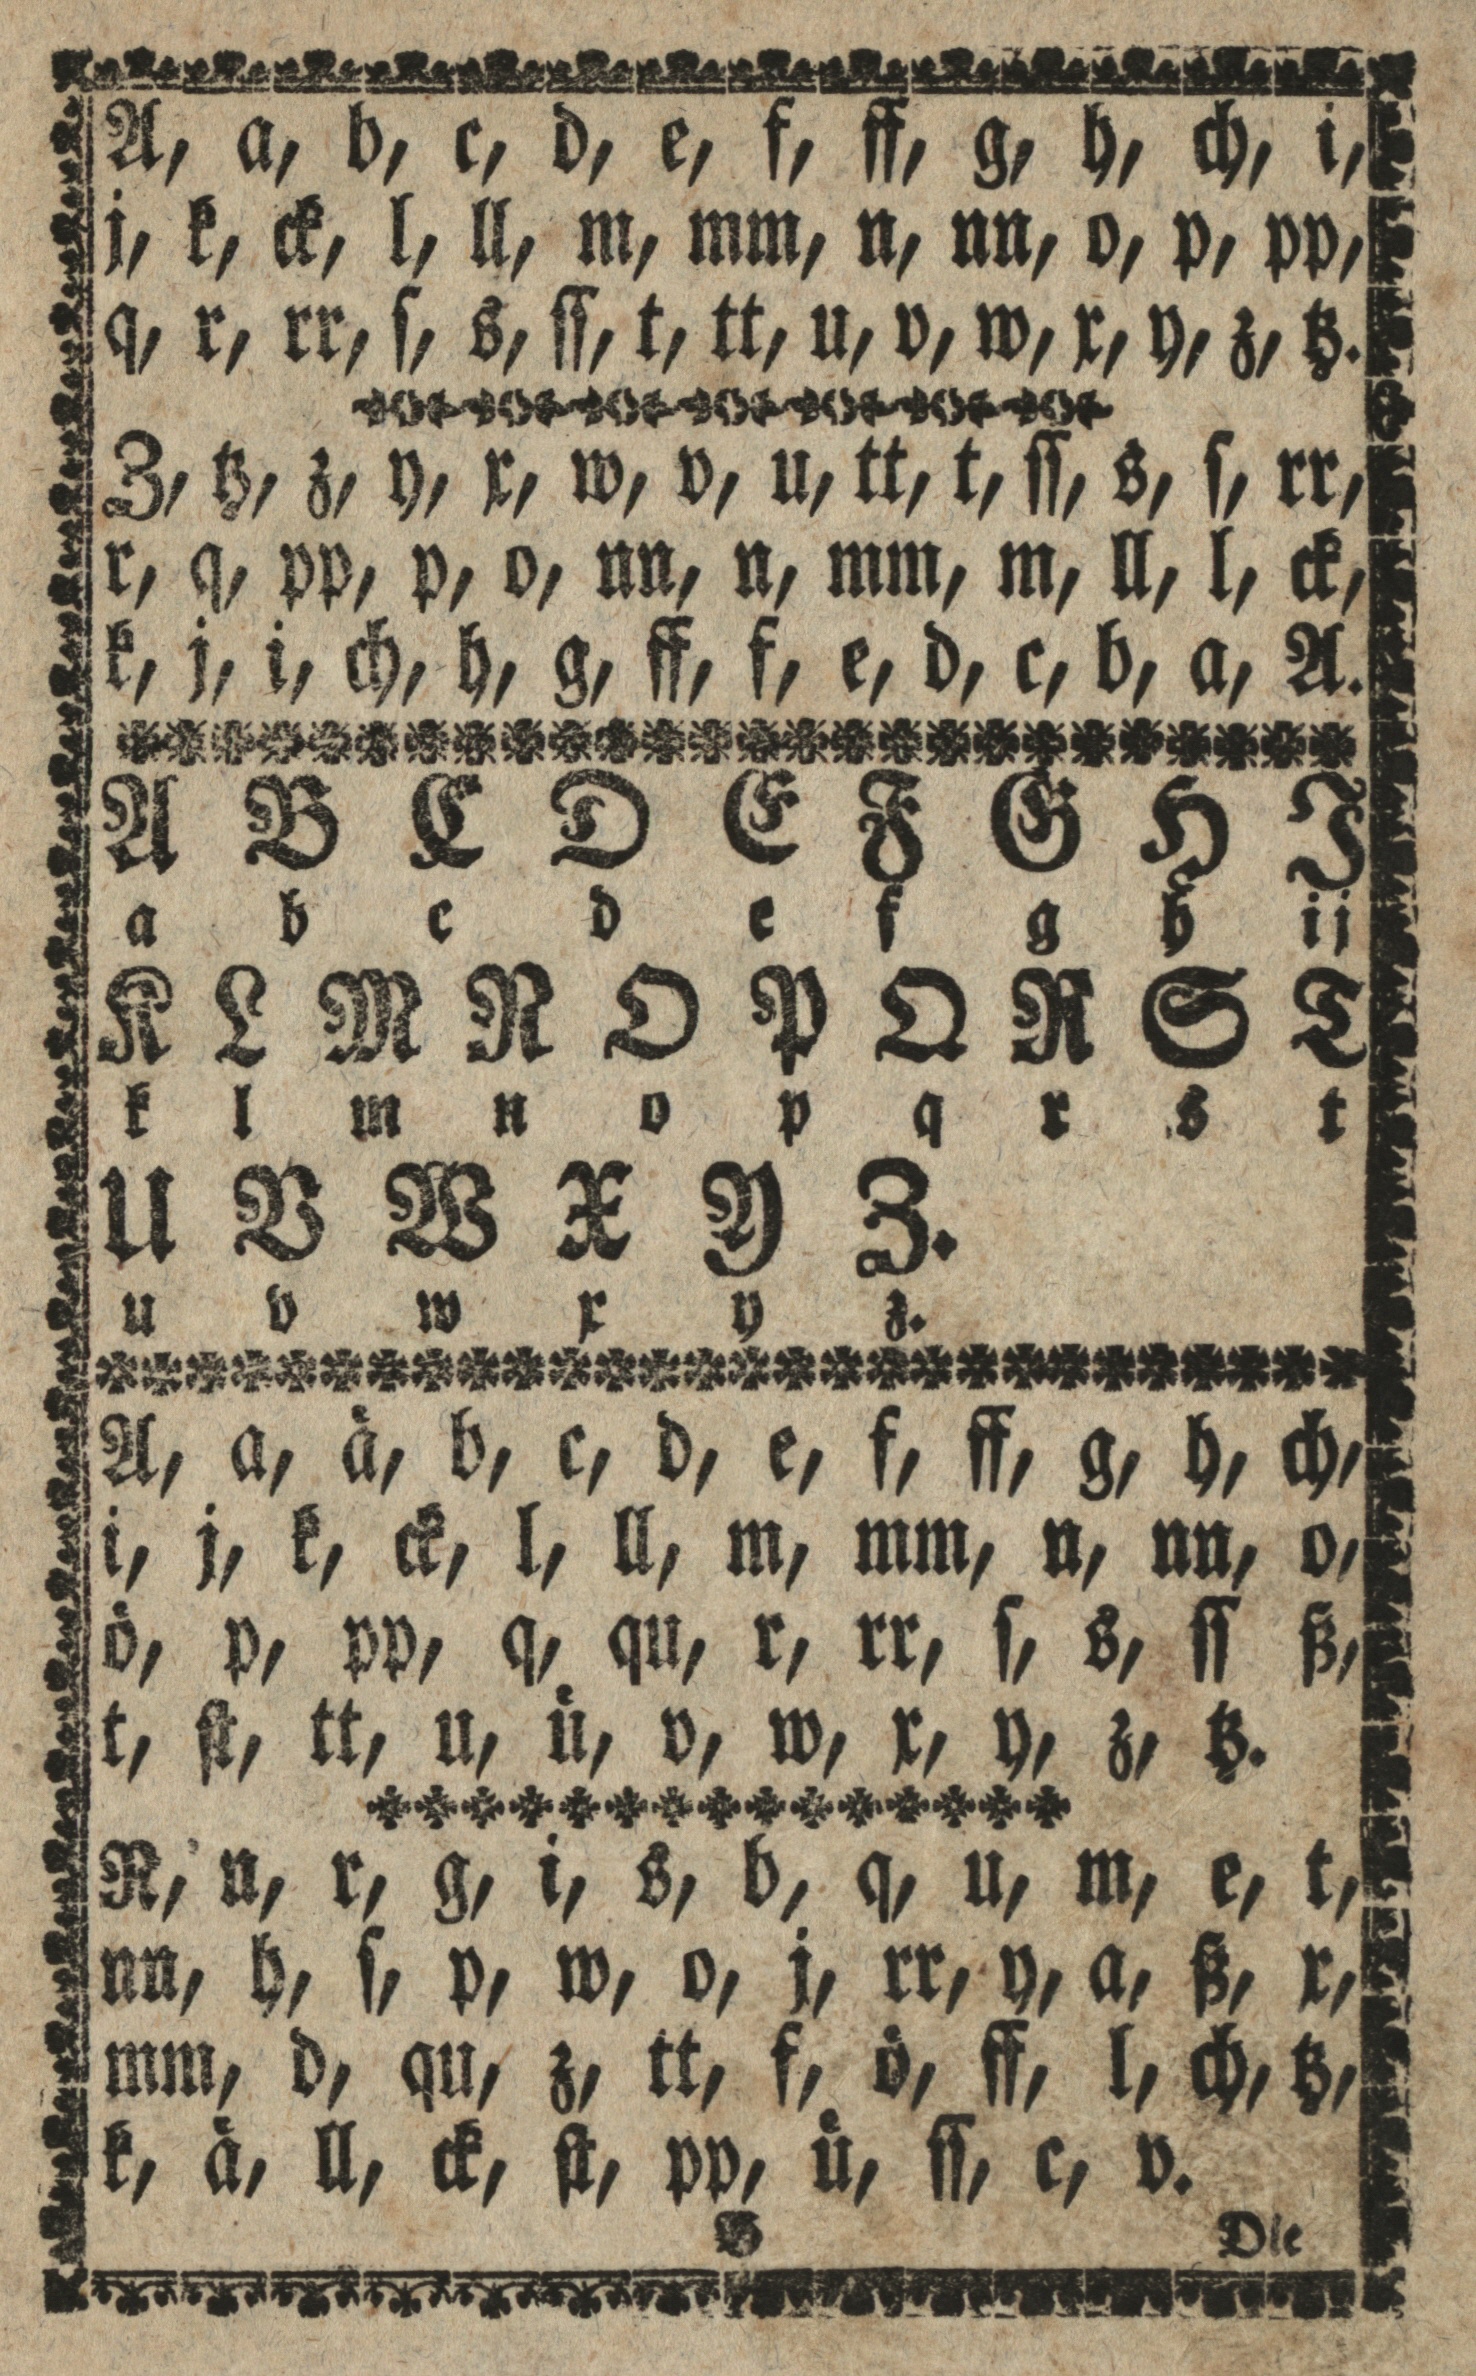 A, a, b, c, d, e, f, ff, g, h, ch, i,
j, k, ck, l, ll, m, mm, n, nn, o, p, pp,
q, r, rr, ſ, s, ſſ, t, tt, u, v, w, x, y, z, tz.
Z, tz, z, y, x, w, v, u, tt, t, ſſ, s, ſ, rr,
r, q, pp, p, o, nn, n, mm, m, ll, l, ck,
k, j, i, ch, h, g, ff, f, e, d, c, b, a, A.
A B C D E F G H J
a b c d e f g h i j
K L M N O P Q R S T
k l m n o p q r s t
U V W X Y Z.
u v w x y z.
A, a, aͤ, b, c, d, e, f, ff, g, h, ch,
i, j, k, ck, l, ll, m, mm, n, nn, o,
oͤ, p, pp, q, qu, r, rr, ſ, s, ſſ ß,
t, ſt, tt, u, uͤ, v, w, x, y, z, tz.
R, n, r, g, i, s, b, q, u, m, e, t,
nn, h, ſ, p, w, o, j, rr, y, a, ß, x,
mm, d, qu, z, tt, f, oͤ, ff, l, ch, tz,
k, aͤ, ll, ck, ſt, pp, uͤ, ſſ, c, v.
Die